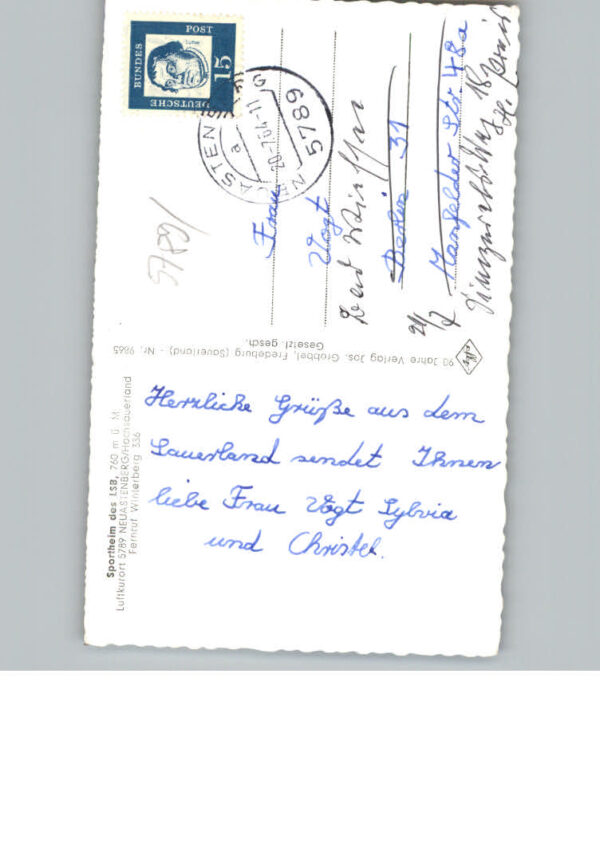 Sportheim des LSB, 760 m ü. M.
Luftkurort 5789 NEUASTENBERG/Hochsauerland
Fernruf Winterberg 336
Herzliche Grüße aus dem
Sauerland sendet Ihnen
liebe Frau Vogt Sylvia
und Christel.
90 Jahre Verlag Jos. Grobbel, Fredeburg (Sauerland) - Nr. 9865
Gesetzl. gesch.
DEUTSCHE BUNDESPOST
15
Luther
5789 NEUASTENBERG
a
20.-7.64-11
5789
Frau
Vogt
Bad
Berlin 31
Mansfelder Str. 48a
21/7